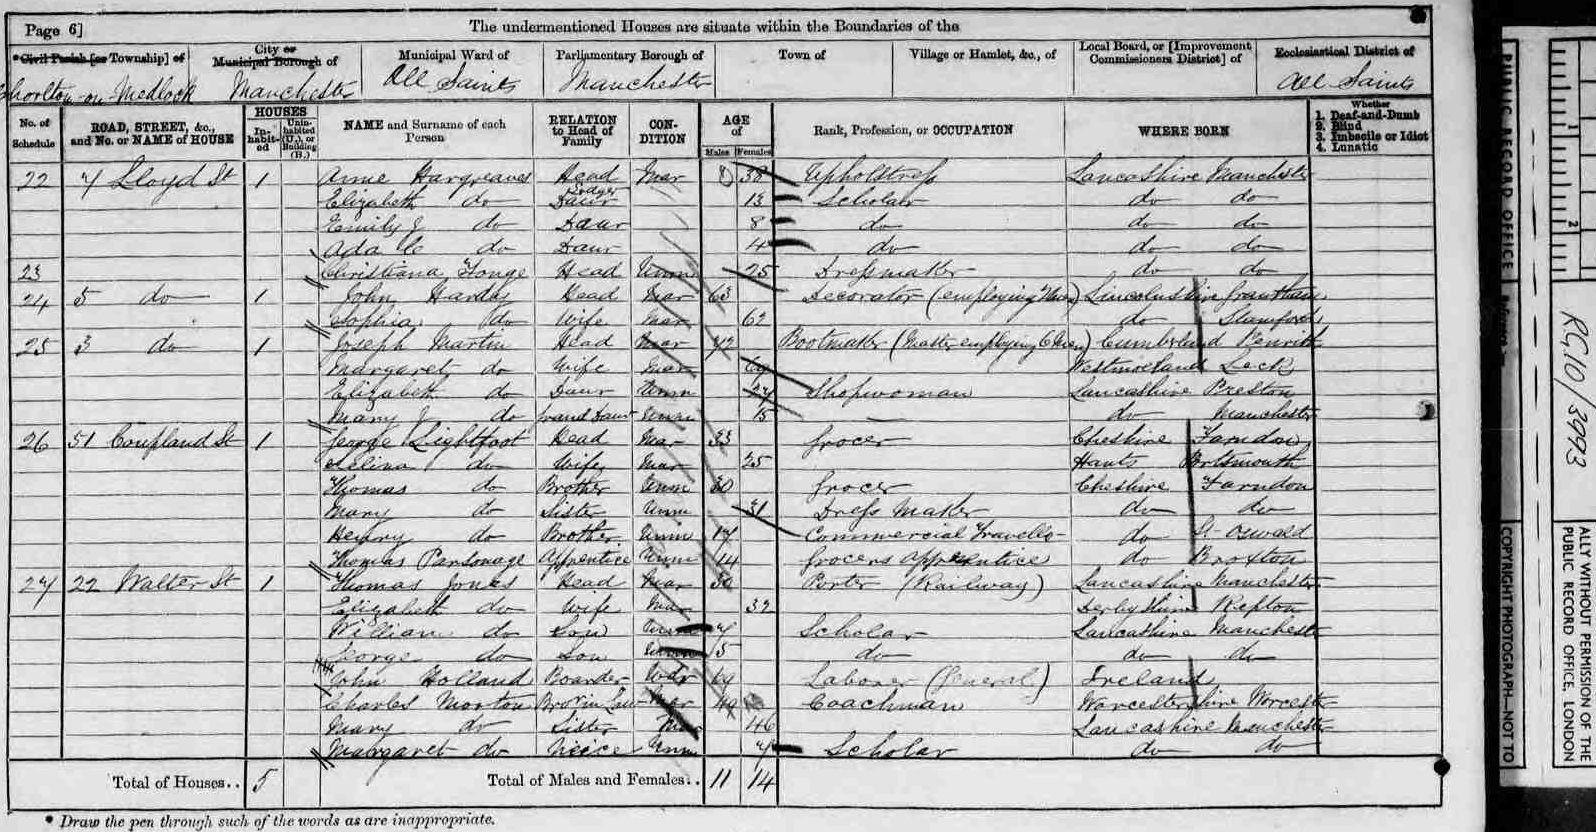 Page 6] The undermentioned Houses are situate within the Boundaries of the
*Civil Parish [or Township] of City or Municipal Borough of Municipal Ward of Parliamentary Borough of Town of Village or Hamlet, &c., of Local Board, or [Improvement Commissioners District] of Ecclesiastical District of
Chorlton-on-Medlock Manchester All Saints Manchester All Saints
No. of Schedule ROAD, STREET, &c., and No. or NAME of HOUSE HOUSES Inhabited Uninhabited (U.), or Building (B.) NAME and Surname of each Person RELATION to Head of Family CONDITION AGE of Males Females Rank, Profession, or OCCUPATION WHERE BORN Whether 1. Deaf-and-Dumb 2. Blind 3. Imbecile or Idiot 4. Lunatic
22 7 Lloyd St 1 Anne Hargreaves Head Mar 38 Upholstress Lancashire Manchester
Elizabeth do Daur 13 Scholar do do
Lodger
Emily J do Daur 8 do do do
Ada C do Daur 4 do do do
23 Christiana Head Unm 25 Dressmaker do do
24 5 do 1 John Hardy Head Mar 63 Decorator (employing Lincolnshire Grantham
Sophia do Wife Mar 62 do Stamford
25 3 do 1 Joseph Martin Head Mar 72 Bootmaker (Master employing 6 men) Cumberland Penrith
Margaret do Wife Mar 69 Westmorland Leck
Elizabeth do Daur Unm 27 Shopwoman Lancashire Preston
Mary J do Grand Daur Unm 15 do Manchester
26 51 Coupland St 1 George Lightfoot Head Mar 33 Grocer Cheshire Farndon
Selina do Wife Mar 25 Hants Portsmouth
Thomas do Brother Unm 30 Grocer Cheshire Farndon
Mary do Sister Unm 31 Dress Maker do do
Henry do Brother Unm 17 Commercial Traveller do St Oswald
Thomas Parsonage Apprentice Unm 14 Grocers Apprentice do Broxton
27 22 Walter St 1 Thomas Jones Head Mar 30 Porter (Railway) Lancashire Manchester
Elizabeth do Wife Mar 32 Derbyshire Repton
William do Son Unm 7 Scholar Lancashire Manchester
George do Son Unm 5 do do do
John Holland Boarder Wdr 69 Laborer (General) Ireland
Charles Morton Bro in Law Mar 49 Coachman Worcestershire Worcester
Mary do Sister Mar 46 Lancashire Manchester
Margaret do Niece Unm 7 Scholar do do
Total of Houses.. 5 Total of Males and Females.. 11 14
* Draw the pen through such of the words as are inappropriate.
PUBLIC RECORD OFFICE
RG10/3993
COPYRIGHT PHOTOGRAPH—NOT TO
ALLY WITHOUT PERMISSION OF THE
PUBLIC RECORD OFFICE, LONDON
1
2